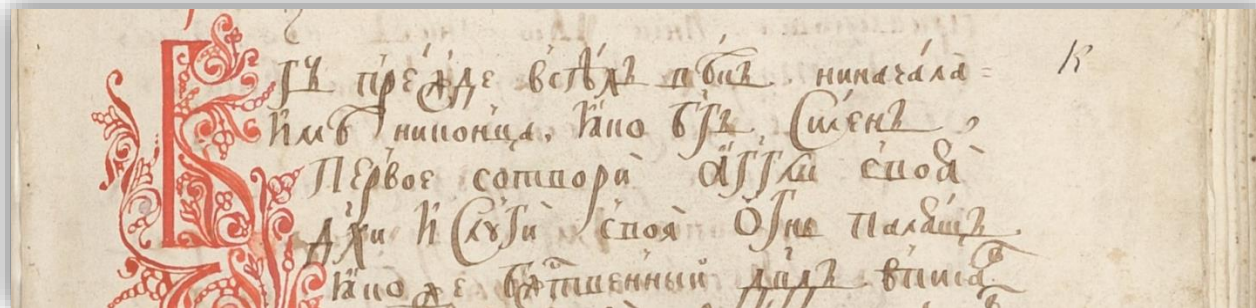 Бг҃ъ пре́жде всѣ́хъ вѣ́къ. ниначáла
Имѣ́ никонца, Ꙗ҆́ко бг҃ъ, Си́ленъ,
Пе́рвое сотвори̂ а҆́гг҃лы своѧ̂
Дх҃и И҆ Слуги̂ своѧ̂ О҆́гнь палѧ́щъ.
Ꙗ҆́коже бж҃е́ственный дв҃дъ.
К